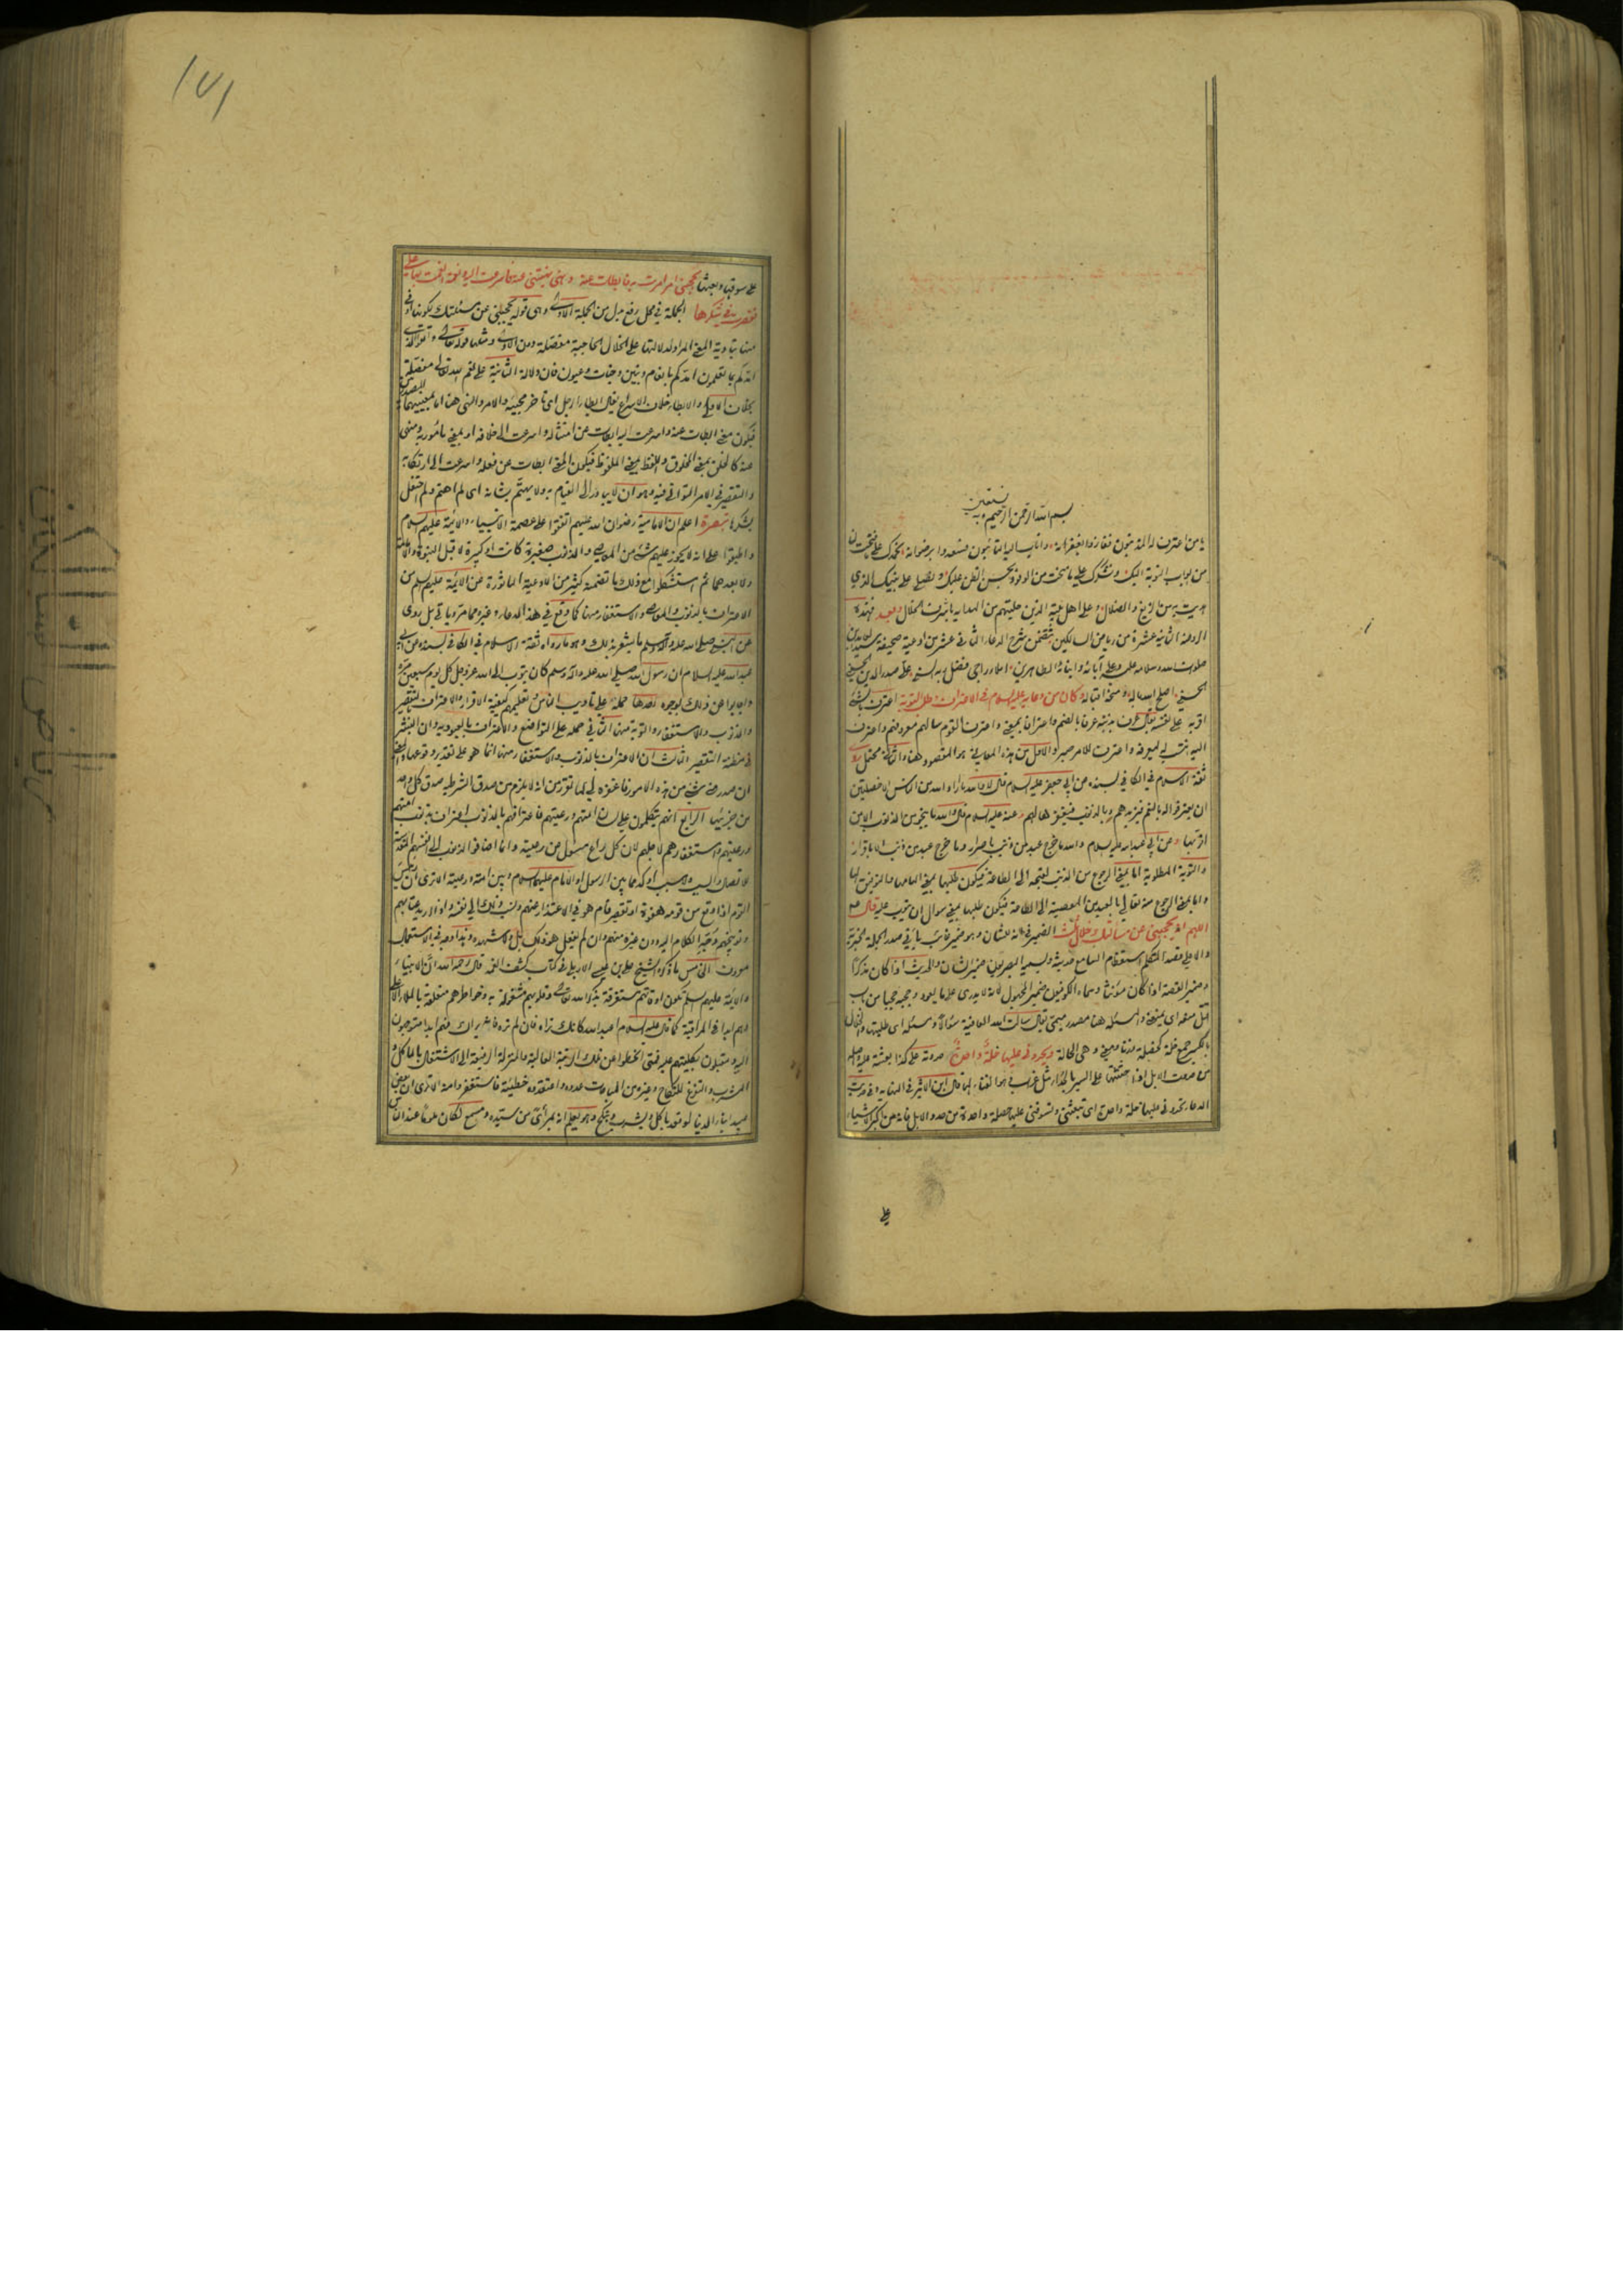 بسم الله الرحمن الرحيم وبه نستعين
يا من اعترف له المذنبون فغفار والغفرانه واناب اليه التائبون فسعدوا برضوانه نحمدك على ما فتحت لنا
من ابواب التوبة اليك ونشكرك على ما منحت من الوفود بحسن الظن عليك ونصلي على نبيك الذي
هديت به من الزيغ والضلال وعلى اهل بيته الذين حليتهم من الهداية باشرف الخلال وبعد فهذه
الروضة الثانية عشرة من رياض السالكين تتضمن شرح الدعاء الثاني عشر من ادعية صحيفة سيد العابدين
صلوات الله وسلامه عليه وعلى آبائه وابنائه الطاهرين املاء راجي فضل ربه السني علي صدر الدين الحسيني
الحسني اصلح الله حاله ومنحه اقباله وكان من دعائه عليه السلام في الاعتراف وطلب التوبة اعترف بالشئ
اقر به على نفسه يقال عرف بذنبه عرفا بالضم واعترافا بمعنى واعترف القوم سالهم عن خبر واعترف
اليه انتسب له ليعرفه واعترف للامر صبر والاول من هذه المعاني هو المقصود هنا
ثقة الاسلام في الكافي بسنده عن ابي جعفر عليه السلام قال لا والله ما اراد الله من الناس الا خصلتين
ان يعترفوا له بالنعم فيزيدهم وبالذنوب فيغفرها لهم وعنه عليه السلام قال والله ما ينجو من الذنوب الا من
اقر بها وعن ابي عبد الله عليه السلام والله ما خرج عبد من ذنب باصرار وما خرج عبد من ذنب الا باقرار
والتوبة المطلوبة اما بمعنى الرجوع من الذنب لقبحه الى الطاعة فيكون طلبها بمعنى الهامها والتوفيق لها
واما بمعنى الرجوع منه تعالى بالعبد من المعصية الى الطاعة فيكون طلبها بمعنى سؤال ان يتوب عليه قال ع
اللهم انه يحجبني عن مسألتك خلال ثلث الضمير في انه للشان وهو ضمير غائب ياتي في صدر الجملة الخبرية
دالا على قصد المتكلم استعظام السامع حديثه ويسميه البصريون ضمير الشان والحديث اذا كان مذكرا
وضمير القصة اذا كان مؤنثا وسماه الكوفيون ضمير المجهول لانه لا يدرى على ما يعود وحجبه حجبا من باب
قتل منعه اي يمنعني والمسئلة هنا مصدر ميمي يقال سالت الله العافية سؤالا ومسئلة اي طلبتها والخلال
بالكسر جمع خلة كخصلة وزنا ومعنى وهي الحالة ويحدوني عليها خلة واحدة حدوته على كذا بعثته عليه واصله
من حدوت الابل اذا حثثتها على السير بالحداء مثل غراب وهو الغناء لها قال ابن الاثير في النهاية وفي حديث
الدعاء تحدوني عليها خلة واحدة اي تبعثني وتسوقني عليها خصلة واحدة من حدو الابل فانه من اكبر الاشياء
على
١٧١
على سوقها وبعثها يحجبني امر امرت به فابطأت عنه ونهي نهيتني عنه فاسرعت اليه ونعمة انعمت بها علي
فقصرت في شكرها الجملة في محل رفع بدل من الجملة الاولى وهي قوله يحجبني عن مسئلتك لكونها اوفى
منها بتأدية المعنى المراد لدلالتها على الخلال الحاجبة مفصلة دون الاولى ومثلها قوله تعالى واتقوا الذي
امدكم بما تعلمون امدكم بانعام وبنين وجنات وعيون فان دلالة الثانية على نعم الله تعالى مفصلة
بخلاف الاولى والابطاء خلاف الاسراع يقال ابطأ الرجل اي تاخر مجيئه والامر والنهي هنا اما بمعنييهما المصدريين
فيكون معنى ابطأت عنه واسرعت اليه ابطأت عن امتثاله واسرعت الى خلافه او بمعنى المأمور به والمنهي
عنه كالخلق بمعنى المخلوق واللفظ بمعنى الملفوظ فيكون المعنى ابطأت عن فعله واسرعت الى ارتكابه
والتقصير في الامر التواني فيه وهو ان لا يبادر الى القيام به ولا يهتم بشانه اي لم اهتم ولم احتفل
بشكرها تبصرة اعلم ان الامامية رضوان الله عليهم اتفقوا على عصمة الانبياء والائمة عليهم السلام
واطبقوا على انه لا يجوز عليهم شئ من المعاصي والذنوب صغيرة كانت او كبيرة لا قبل النبوة والامامة
ولا بعدهما ثم استشكلوا مع ذلك ما تضمنه كثير من الادعية الماثورة عن الائمة عليهم السلام من
الاعتراف بالذنوب والمعاصي والاستغفار منها كما وقع في هذا الدعاء وغيره مما مر وياتي بل روى
عن النبي صلى الله عليه وآله وسلم ما يشعر بذلك وهو ما رواه ثقة الاسلام في الكافي بسنده عن ابي
عبد الله عليه السلام ان رسول الله صلى الله عليه وآله وسلم كان يتوب الى الله عز وجل كل يوم سبعين مرة
واجابوا عن ذلك بوجوه احدها حمله على تاديب الناس وتعليمهم كيفية الاقرار والاعتراف بالتقصير
والذنوب والاستغفار والتوبة منها الثاني حمله على التواضع والاعتراف بالعبودية وان البشر
في مظنة التقصير الثالث ان الاعتراف بالذنوب والاستغفار منها انما هو على تقدير وقوعها والمعنى
ان صدر مني شئ من هذه الامور فاغفره لي لما تقرر من انه لا يلزم من صدق الشرطية صدق كل واحد
من جزئيها الرابع انهم يتكلمون على لسان امتهم ورعيتهم فاعترافهم بالذنوب اعتراف بذنوب امتهم
ورعيتهم واستغفارهم لاجلهم لان كل راع مسئول عن رعيته وانما اضافوا الذنوب الى انفسهم المقدسة
للاتصال والسبب ولا سبب اوكد مما بين الرسول او الامام عليهما السلام وبين امته ورعيته الا ترى ان رئيس
القوم اذا وقع من قومه هفوة او تقصير قام هو في الاعتذار عنهم ونسب ذلك الى نفسه واذا اريد عتابهم
وتوبيخهم وجه الكلام اليه دون غيره منهم وان لم يفعل هو ذلك بل ولا شهده وهذا وجه في الاستعمال
معروف الخامس ما ذكره الشيخ علي بن عيسى الاربلي في كتاب كشف الغمة قال رحمه الله ان الانبياء
والائمة عليهم السلام تكون اوقاتهم مستغرقة بذكر الله تعالى وقلوبهم مشغولة به وخواطرهم متعلقة بالملأ الاعلى
وهم ابدا في المراقبة كما قال عليه السلام اعبد الله كانك تراه فان لم تره فانه يراك فهم ابدا متوجهون
اليه ومقبلون بكليتهم عليه فمتى انحطوا عن تلك الرتبة العالية والمنزلة الرفيعة الى الاشتغال بالماكل و
المشرب والتفرغ للنكاح وغيره من المباحات عدوه ذنبا واعتقدوه خطيئة فاستغفروا منه الا ترى ان بعض
عبيد ابناء الدنيا لو قعد ياكل ويشرب وينكح وهو يعلم انه بمرأى من سيده ومسمع لكان ملوما عند الناس